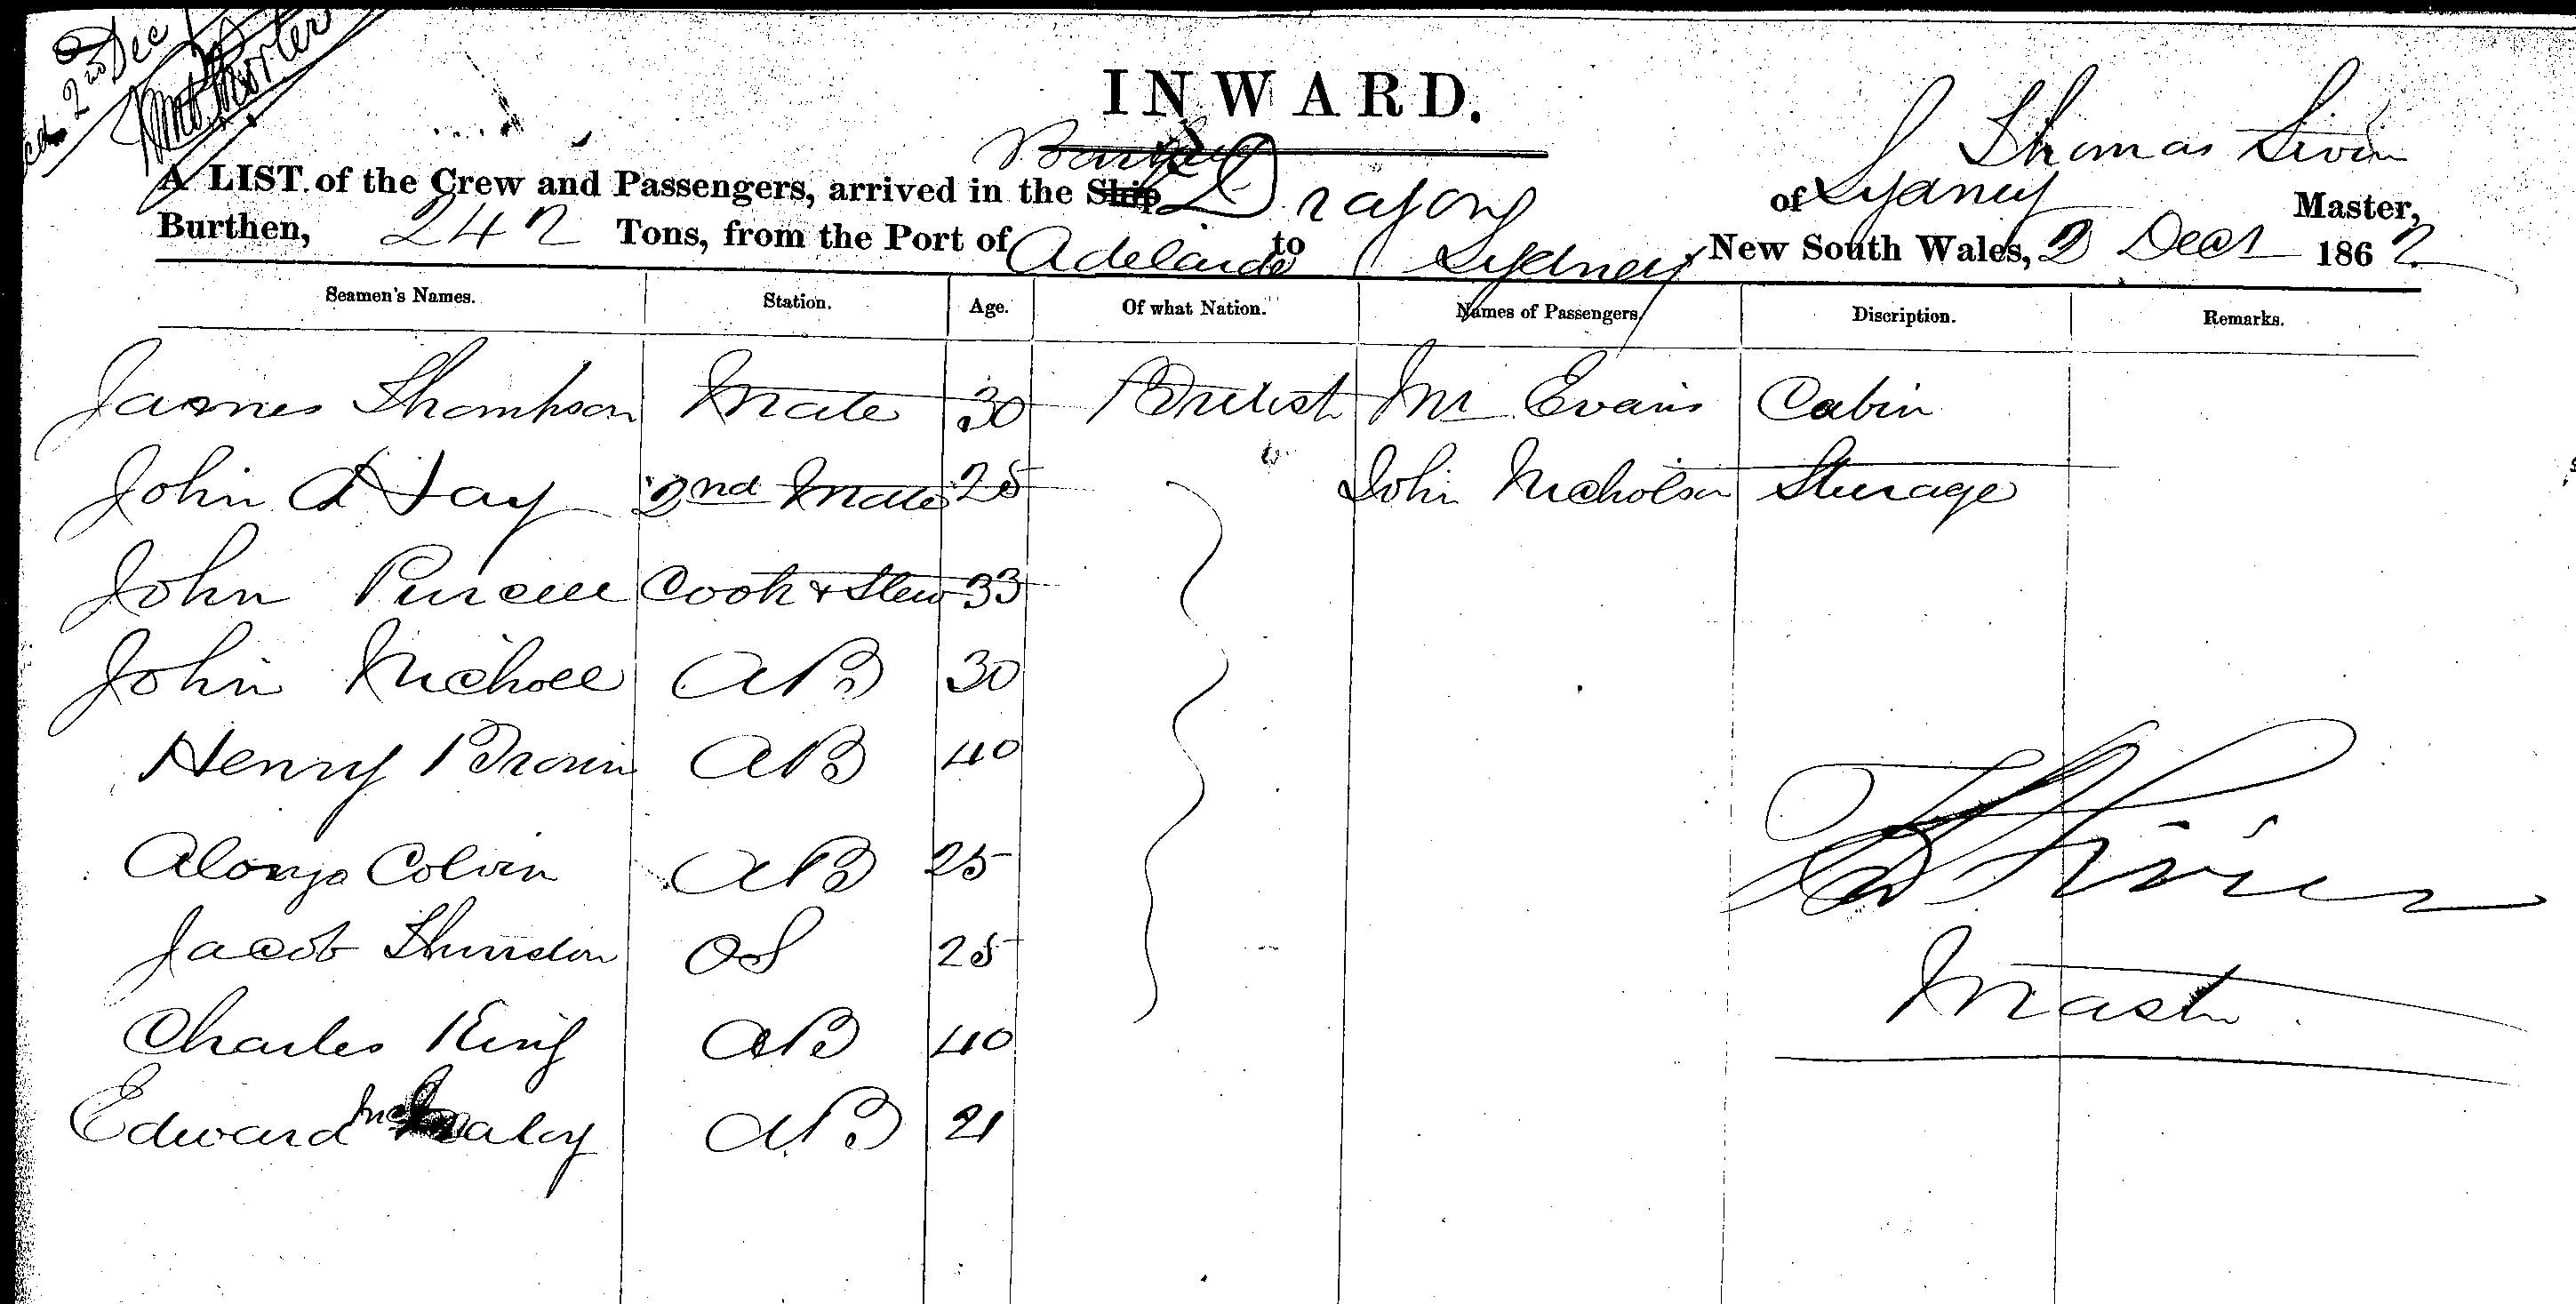 2nd Dec
INWARD.
Thomas
A LIST of the Crew and Passengers, arrived in the Ship Dragon of Sydney Master,
Burthen, 242 Tons, from the Port of Adelaide to Sydney New South Wales, 2 Decr 1862
Seamen's Names. Station. Age. Of what Nation. Names of Passengers. Discription. Remarks.
James Thompson Mate 30 British Mr Evans Cabin
John A Hay 2nd Mate 25 John Nicholson Sturage
John Purcell Cook & Stew 33
John Nicholl AB 30
Henry Brown AB 40
Alonzo Colvin AB 25
Jacob OS 25
Charles King AB 40
Edward AB 21
Master